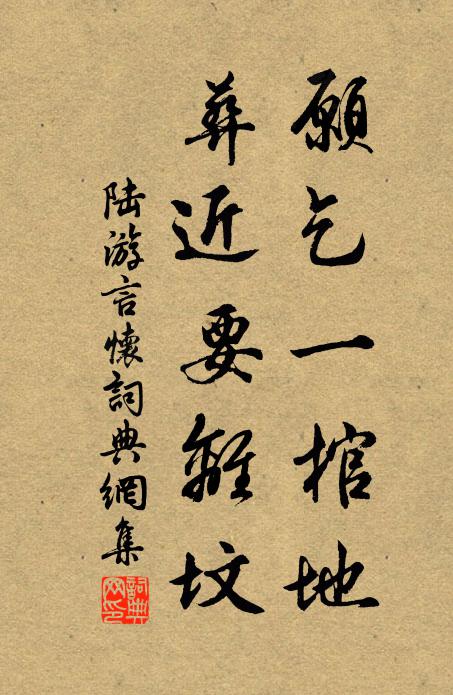 願乞一棺地
葬近要離墳
陸游言懷詞典網集
詞典网印